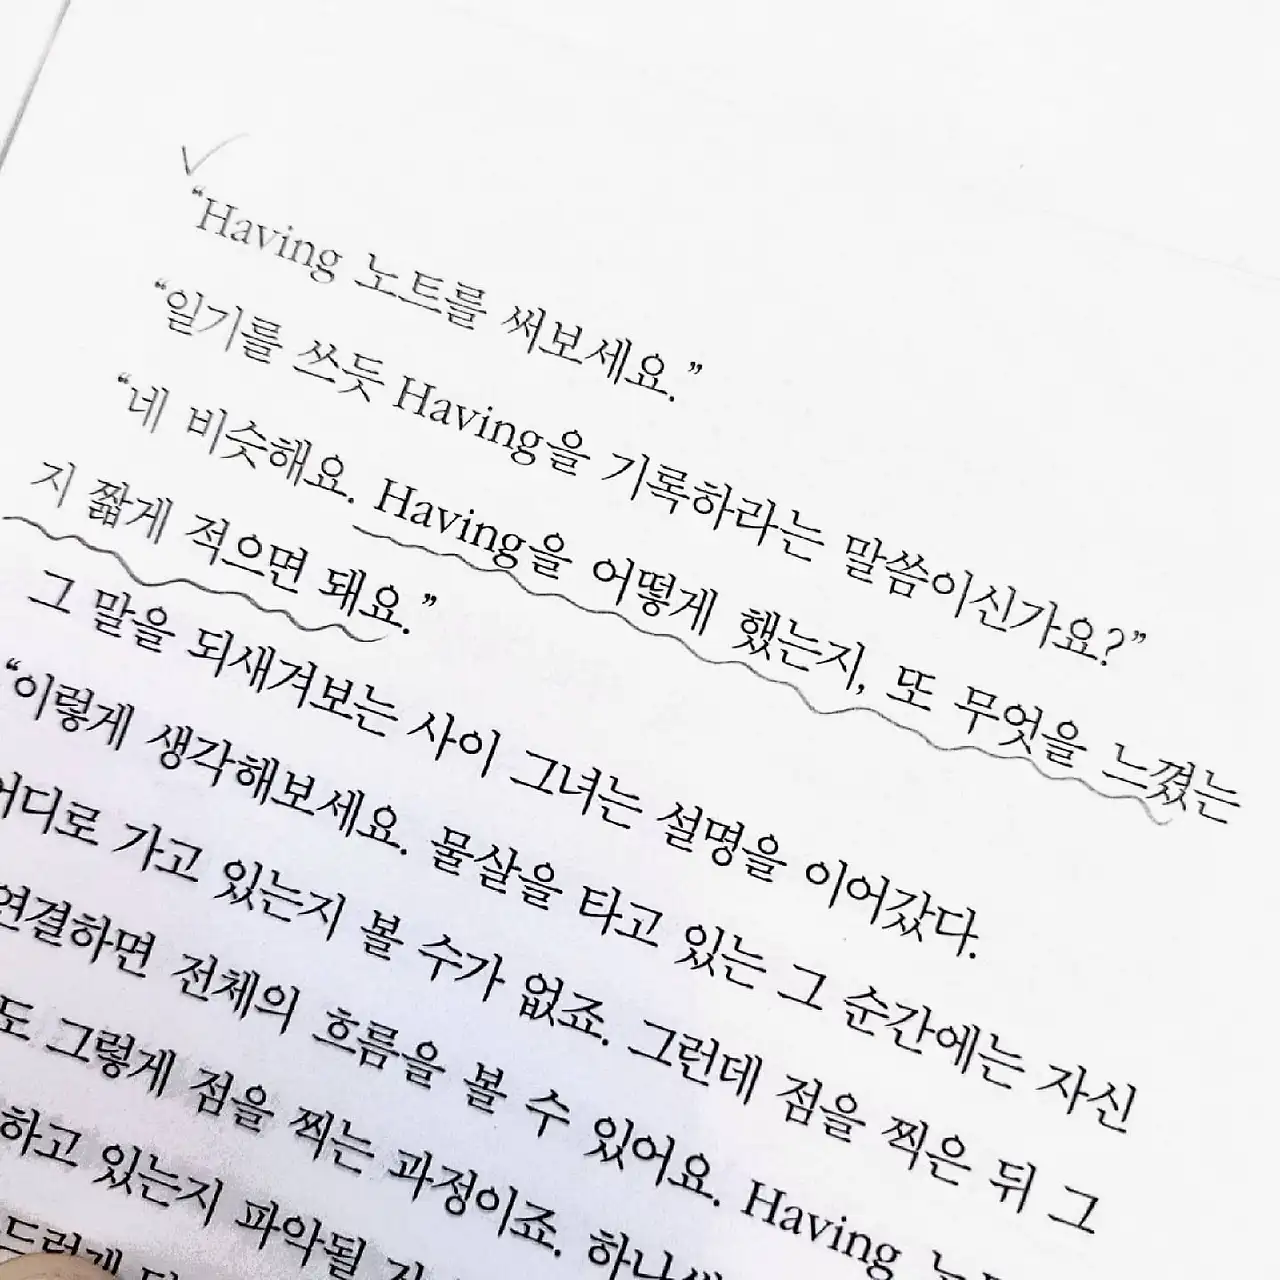 “Having 노트를 써보세요.”
“일기를 쓰듯 Having을 기록하라는 말씀이신가요?”
“네 비슷해요. Having을 어떻게 했는지, 또 무엇을 느꼈는
지 짧게 적으면 돼요.”
그 말을 되새겨보는 사이 그녀는 설명을 이어갔다.
“이렇게 생각해보세요. 물살을 타고 있는 그 순간에는 자신
어디로 가고 있는지 볼 수가 없죠. 그런데 점을 찍은 뒤 그
연결하면 전체의 흐름을 볼 수 있어요. Having
도 그렇게 점을 찍는 과정이죠.
하고 있는지 파악될